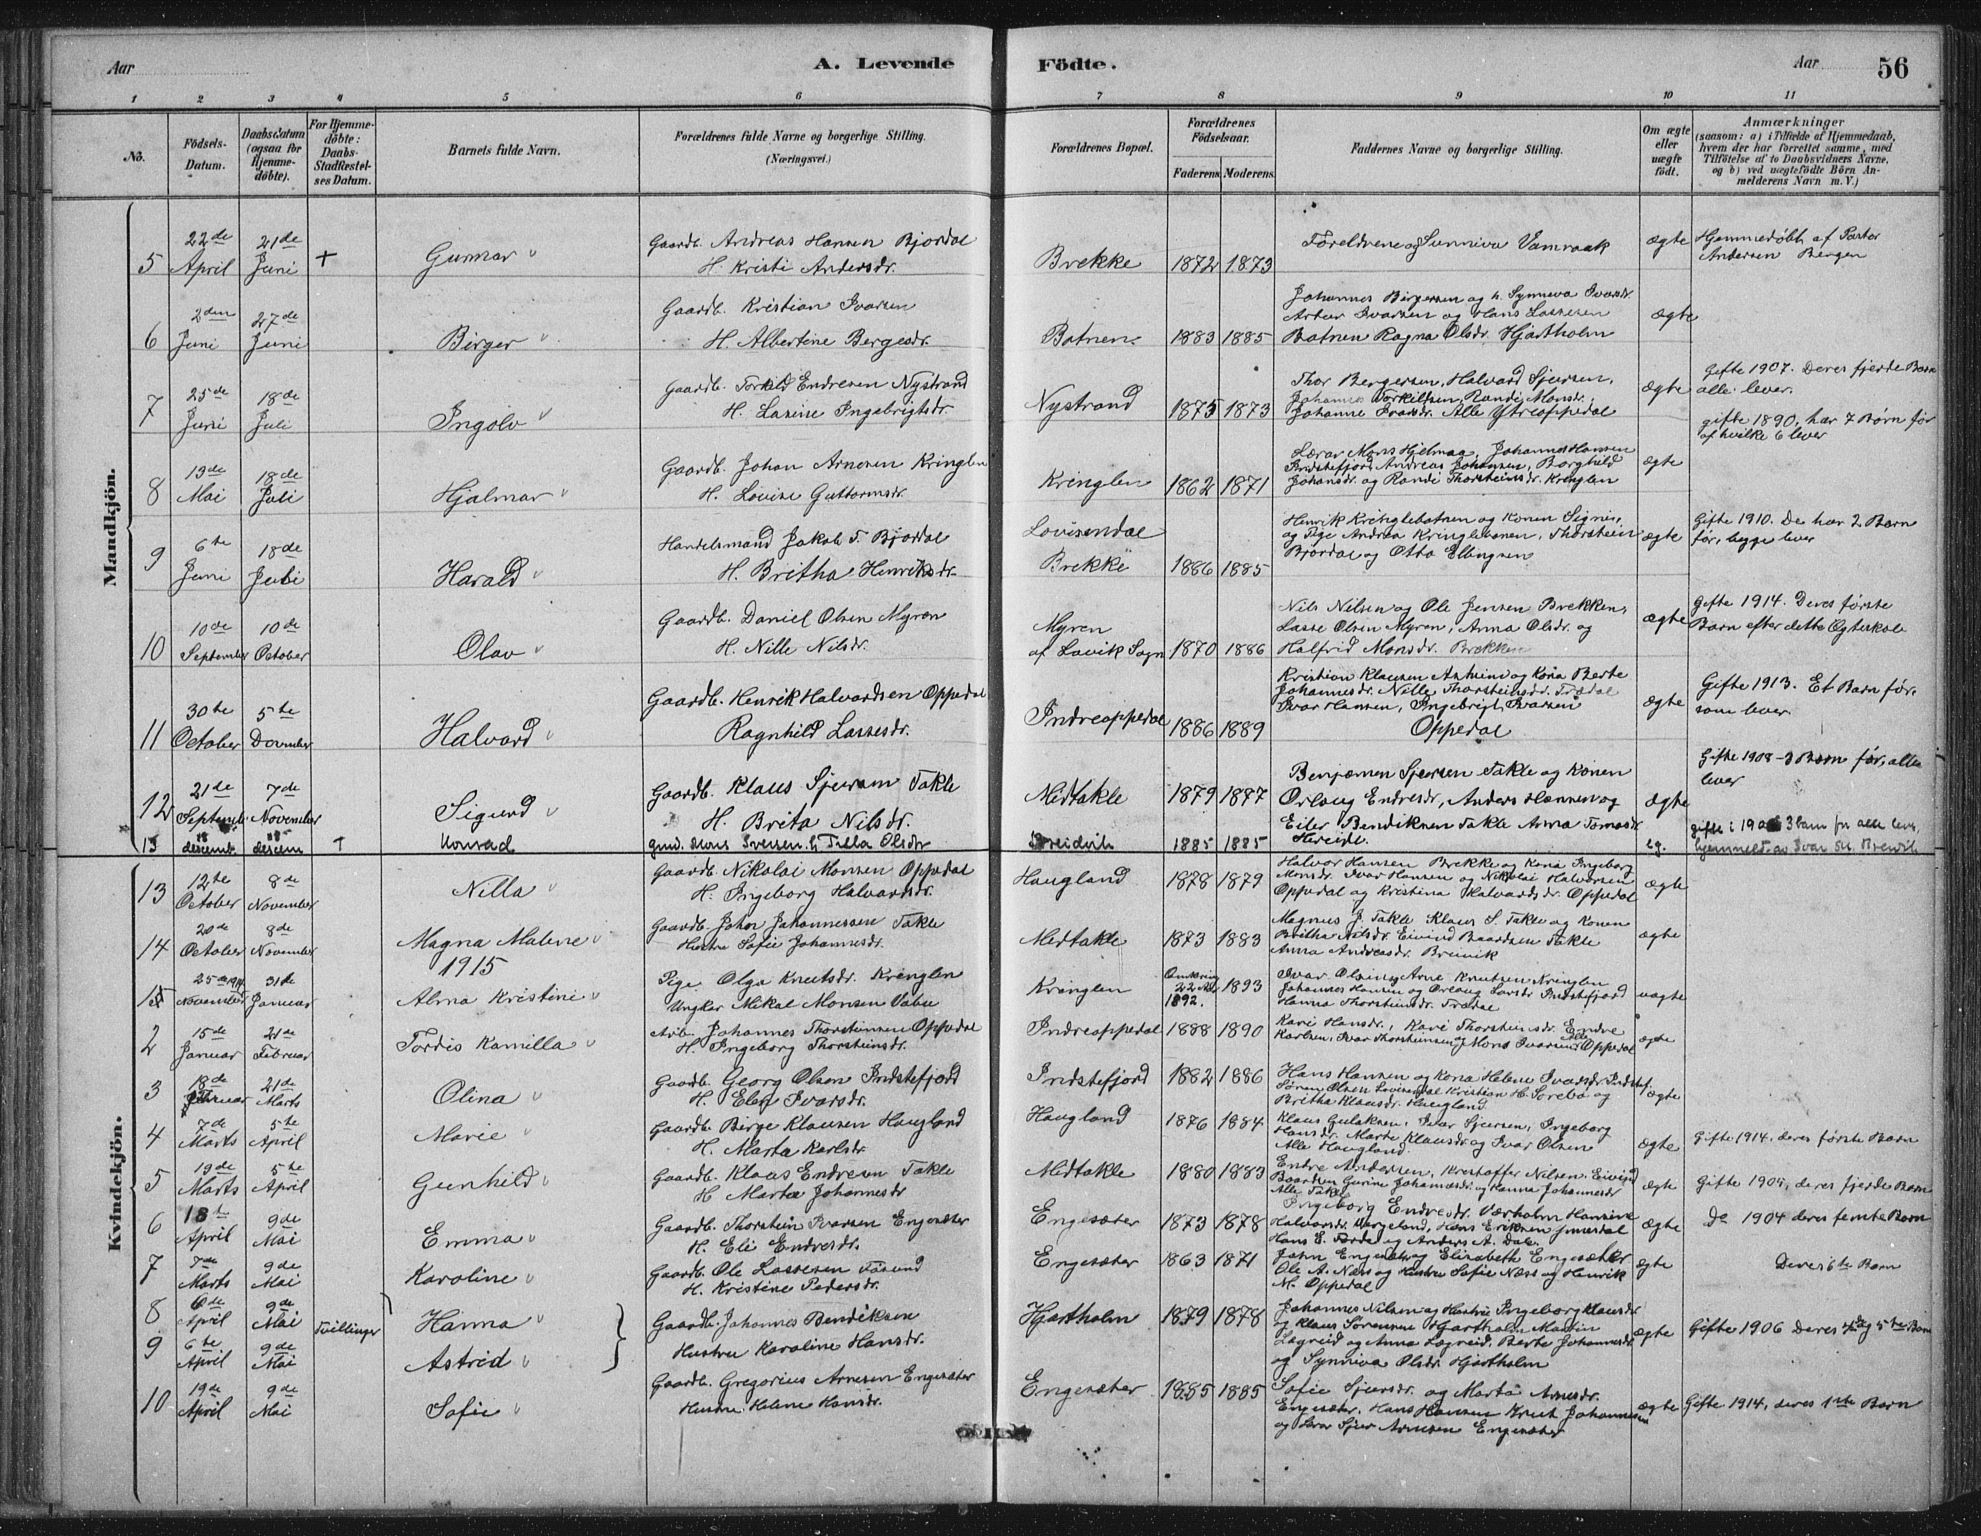 Aar
A. Levende
Födte.
Aar
56
1 2 3 4 5 6 7 8 9 10 11
No.
Födsels-
Datum.
Daabsdatum
(ogsaa for
Hjemme-
döbte).
For Hjemme-
döbte:
Daabs-
Stadfæstel-
ses Datum.
Barnets fulde Navn.
Forældrenes fulde Navne og borgerlige Stilling.
(Næringsvei.)
Forældrenes Bopæl.
Forældrenes
Födselsaar.
Faderens. Moderens.
Faddernes Navne og borgerlige Stilling.
Om ægte
eller
uægte
födt.
Anmærkninger
(saasom: a) i Tilfælde af Hjemmedaab,
hvem der har forrettet samme, med
Tilföielse af to Daabsvidners Navne,
og b) ved uægtefödte Börn An-
melderens Navn m. V.)
Mandkjön.
5 22de April 21de Juni + Gunnar
Gaardb. Andreas Hansen Bjordal
H. Kristi Andersdr.
Brekke 1872 1873
Foreldrene og Sunniva Vamraak
ægte
Hjemmedøbt af Pastor
Andersen Bergen
6 2den Juni 27de Juni Birger
Gaardb. Kristian Ivarsen
H. Albertine Bergesdr.
Botnen 1883 1885
Johannes Birgersen og h. Synneva Ivarsdr.
Artur Ivarsen og Hans Lassesen
Botnen Ragna Olsdr. Hjartholm
ægte
7 25de Juni 18de Juli Ingolv
Gaardb. Torkild Endresen Nystrand
H. Lasine Ingebrigtsdr.
Nystrand 1875 1873
Thor Bergersen, Halvard Sjursen,
Johannes Torkildsen, Randi Monsdr.
Johanne Ivarsdr. Alle Ytreoppedal
ægte
Gifte 1907. Deres fjerde Barn
alle lever.
8 13de Mai 18de Juli Hjalmar
Gaardb. Johan Arnesen Kringlen
H. Lovise Guttormsdr.
Kringlen 1862 1871
Lærar Mons Hjelmaa, Johannes Hansen
Indstefjord, Andreas Johansen, Borghild
Johansdr. og Randi Thorsteinsdr. Kringlen
ægte
gifte 1890, har 7 Børn før
af hvilke 6 lever
9 6te Juni 18de Juli Harald
Handelsmand Jakob T. Bjordal
H. Britha Henriksdr.
Lovisendal
Brekke 1886 1885
Henrik Kringlebotnen og Konen Signe,
og Pige Andrea Kringlebotnen, Thorstein
Bjordal og Otto Ellingsen
ægte
Gifte 1910. De har 2 Barn
før, begge lever
10 10de September 10de October Olav
Gaardb. Daniel Olsen Myren
H. Nille Nilsdr.
Myren
af Lavik Sogn 1870 1886
Nils Nilsen og Ole Jensen Brekken,
Lasse Olsen Myren, Anna Olsdr. og
Halfrid Monsdr. Brekken
ægte
Gifte 1914. Deres første
Barn efter dette Ægteskab
11 30te October 5te December Halvard
Gaardb. Henrik Halvardsen Oppedal
Ragnhild Lassesdr.
Indreoppedal 1886 1889
Kristian Klausen og Kona Berte
Johannesdr. Nille Thorsteinsdr. Trædal
Ivar Hansen, Ingebrigt Ivarsen
Oppedal
ægte
Gifte 1913. Et Barn før,
som lever.
12 21de September 7de November Sigurd
Gaardb. Klaus Sjursen Takle
H. Brita Nilsdr.
Midtakle 1879 1887
Benjamen Sjursen Takle og Konen
Orlaug Endresdr, Anders Hannes og
Eiler Bendiksen Takle Anna Tomasdr.
ægte
Gifte 1908 - 3 Barn før, alle
lever
13 18 desemb. desem + Konrad
gmd. Mons Iversen h. Tilla Olsdr
Breidvik 1885 1885
eg.
gifte i 190 3 barn før alle lever,
hjemmed. av Ivar Breivik
Kvindekjön.
13 12te October 8de November Nilla
Gaardb. Nikolai Monsen Oppedal
H. Ingeborg Halvardsdr.
Haugland 1878 1879
Halvor Hansen Brekke og Kona Ingeborg
Monsdr. Ivar Hansen og Nikolai Halvorsen
Oppedal og Kristina Halvardsdr. Oppedal
ægte
14 20de October 8de November Magna Malene
Gaardb. Johan Johannessen Takle
Hustru Sofie Johannesdr.
Midtakle 1873 1883
Magnus J. Takle Klaus S. Takle og Konen
Britha Nilsdr. Eivind Baardsen Takle
Anna Andreasdr. Breivik
ægte
1915
25de 1914 November 31de Januar Alma Kristine
Pige Olga Knutsdr. Kringlen
Ungkar Mikal Monsen Vabu
Kringlen
Omkring
22 Aar
1892. 1893
Ivar Olsen, Arne Knutsen Kringlen
Johannes Hansen og Orlaug Larsdr. Indstefjord
Hanna Thorsteinsdr. Trædal
uægte
2 15de Januar 21de Februar Tordis Kamilla
Arb. Johannes Thorsteinsen Oppedal
H. Ingeborg Thorsteinsdr.
Indreoppedal 1888 1890
Kari Hansdr., Kari Thorsteinsdr. Endre
Karlsen, Ivar Thorsteinsen og Mons Ivarsen Alle Oppedal
ægte
3 18de Februar 21de Marts Olina
Gaardb. Georg Olsen Indstefjord
H. Elen Ivarsdr.
Indstefjord 1882 1886
Hans Hansen og Kona Helene Ivarsdr. Indstef.
Søren Olsen Lovisendal Kristian H. Sørebø og
Britha Klausdr. Haugland
ægte
4 7de Marts 5te April Marie
Gaardb. Birge Klausen Haugland
H. Marta Karlsdr.
Haugland 1876 1884
Klaus Gulaksen, Peder Sjursen, Ingeborg
Hansdr. Marta Klausdr. og Ivar Olsen
Alle Haugland.
ægte
Gifte 1914, deres første Barn
5 19de Marts 5te April Gunhild
Gaardb. Klaus Endresen Takle
H. Marta Johannesdr
Midtakle 1880 1883
Endre Andersen, Kristoffer Nilsen, Eivind
Baardsen Gurine Johannesdr. og Hanna Johannesdr
Alle Takle
ægte
Gifte 1905, deres fjerde Barn
6 18te April 9de Mai Emma
Gaardb. Thorstein Ivarsen Engesæter
H. Eli Endresdr.
Engesæter 1873 1878
Ingeborg Endresdr. Værholm Hansine
Halvorsdr. Vergeland, Hans Eriksen
Hans E. Førde og Anders A. Dale
ægte
Do 1904 deres femte Barn
7 7de Marts 9de Mai Karoline
Gaardb. Ole Lassesen
H. Kristine Pedersdr.
Engesæter 1863 1871
John Engesæter og Elizabeth Engesæter
Ole A. Næss og Hustru Sofie Næss og Henrik
M. Oppedal
ægte
Deres 6te Barn
8 6de April 9de Mai Tvillinger Hanna
9 6te April 9de Mai Astrid
Gaardb. Johannes Bendiksen
Hustru Karoline Hansdr.
Hjartholm 1879 1878
Johannes Nilsen og Hustru Ingeborg Klausdr
og Klaus Sørensen Hjartholm Martin
Lægreid og Anna Lægreid, Berte Johannesdr
og Synniva Olsdr. Hjartholm
ægte
Gifte 1906 Deres 4de og 5te Barn
10 19de April 9de Mai Sofie
Gaardb. Gregorius Arnesen Engesæter
Hustru Helene Hansdr.
Engesæter 1885 1885
Sofie Sjursdr. og Marta Arnesdr.
Engesæter, Hans Hansen Knut Johannesen
og Lars Sjur Arnesen Engesæter
ægte
Gifte 1914, deres 1ste Barn